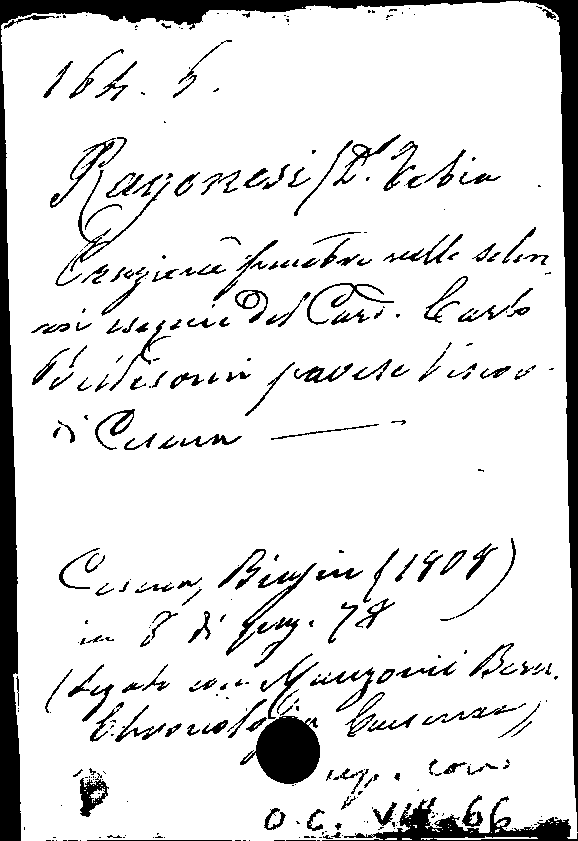 164. 5.
Ragonesi (D. Tobia
Orazione funebre nelle solen-
ni esequie del Card. Carlo
Bellisomi pavese Vescovo
di Cesena
Cesena, Biasini (1808)
in 8 di pag. 78
(legato con Manzonii Bern.
Chronologia Caesenae)
leg. cors
O.C. VIII 66